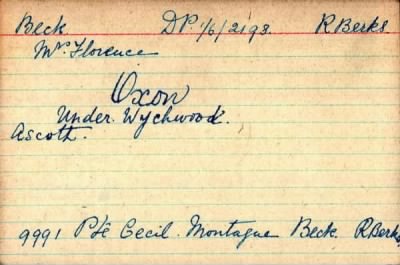 Beck DP. 1/6/2193. R Berks
Mrs Florence
Oxon
Under. Wychwood.
Ascott.
9991 Pte Cecil. Montague Beck R Berks